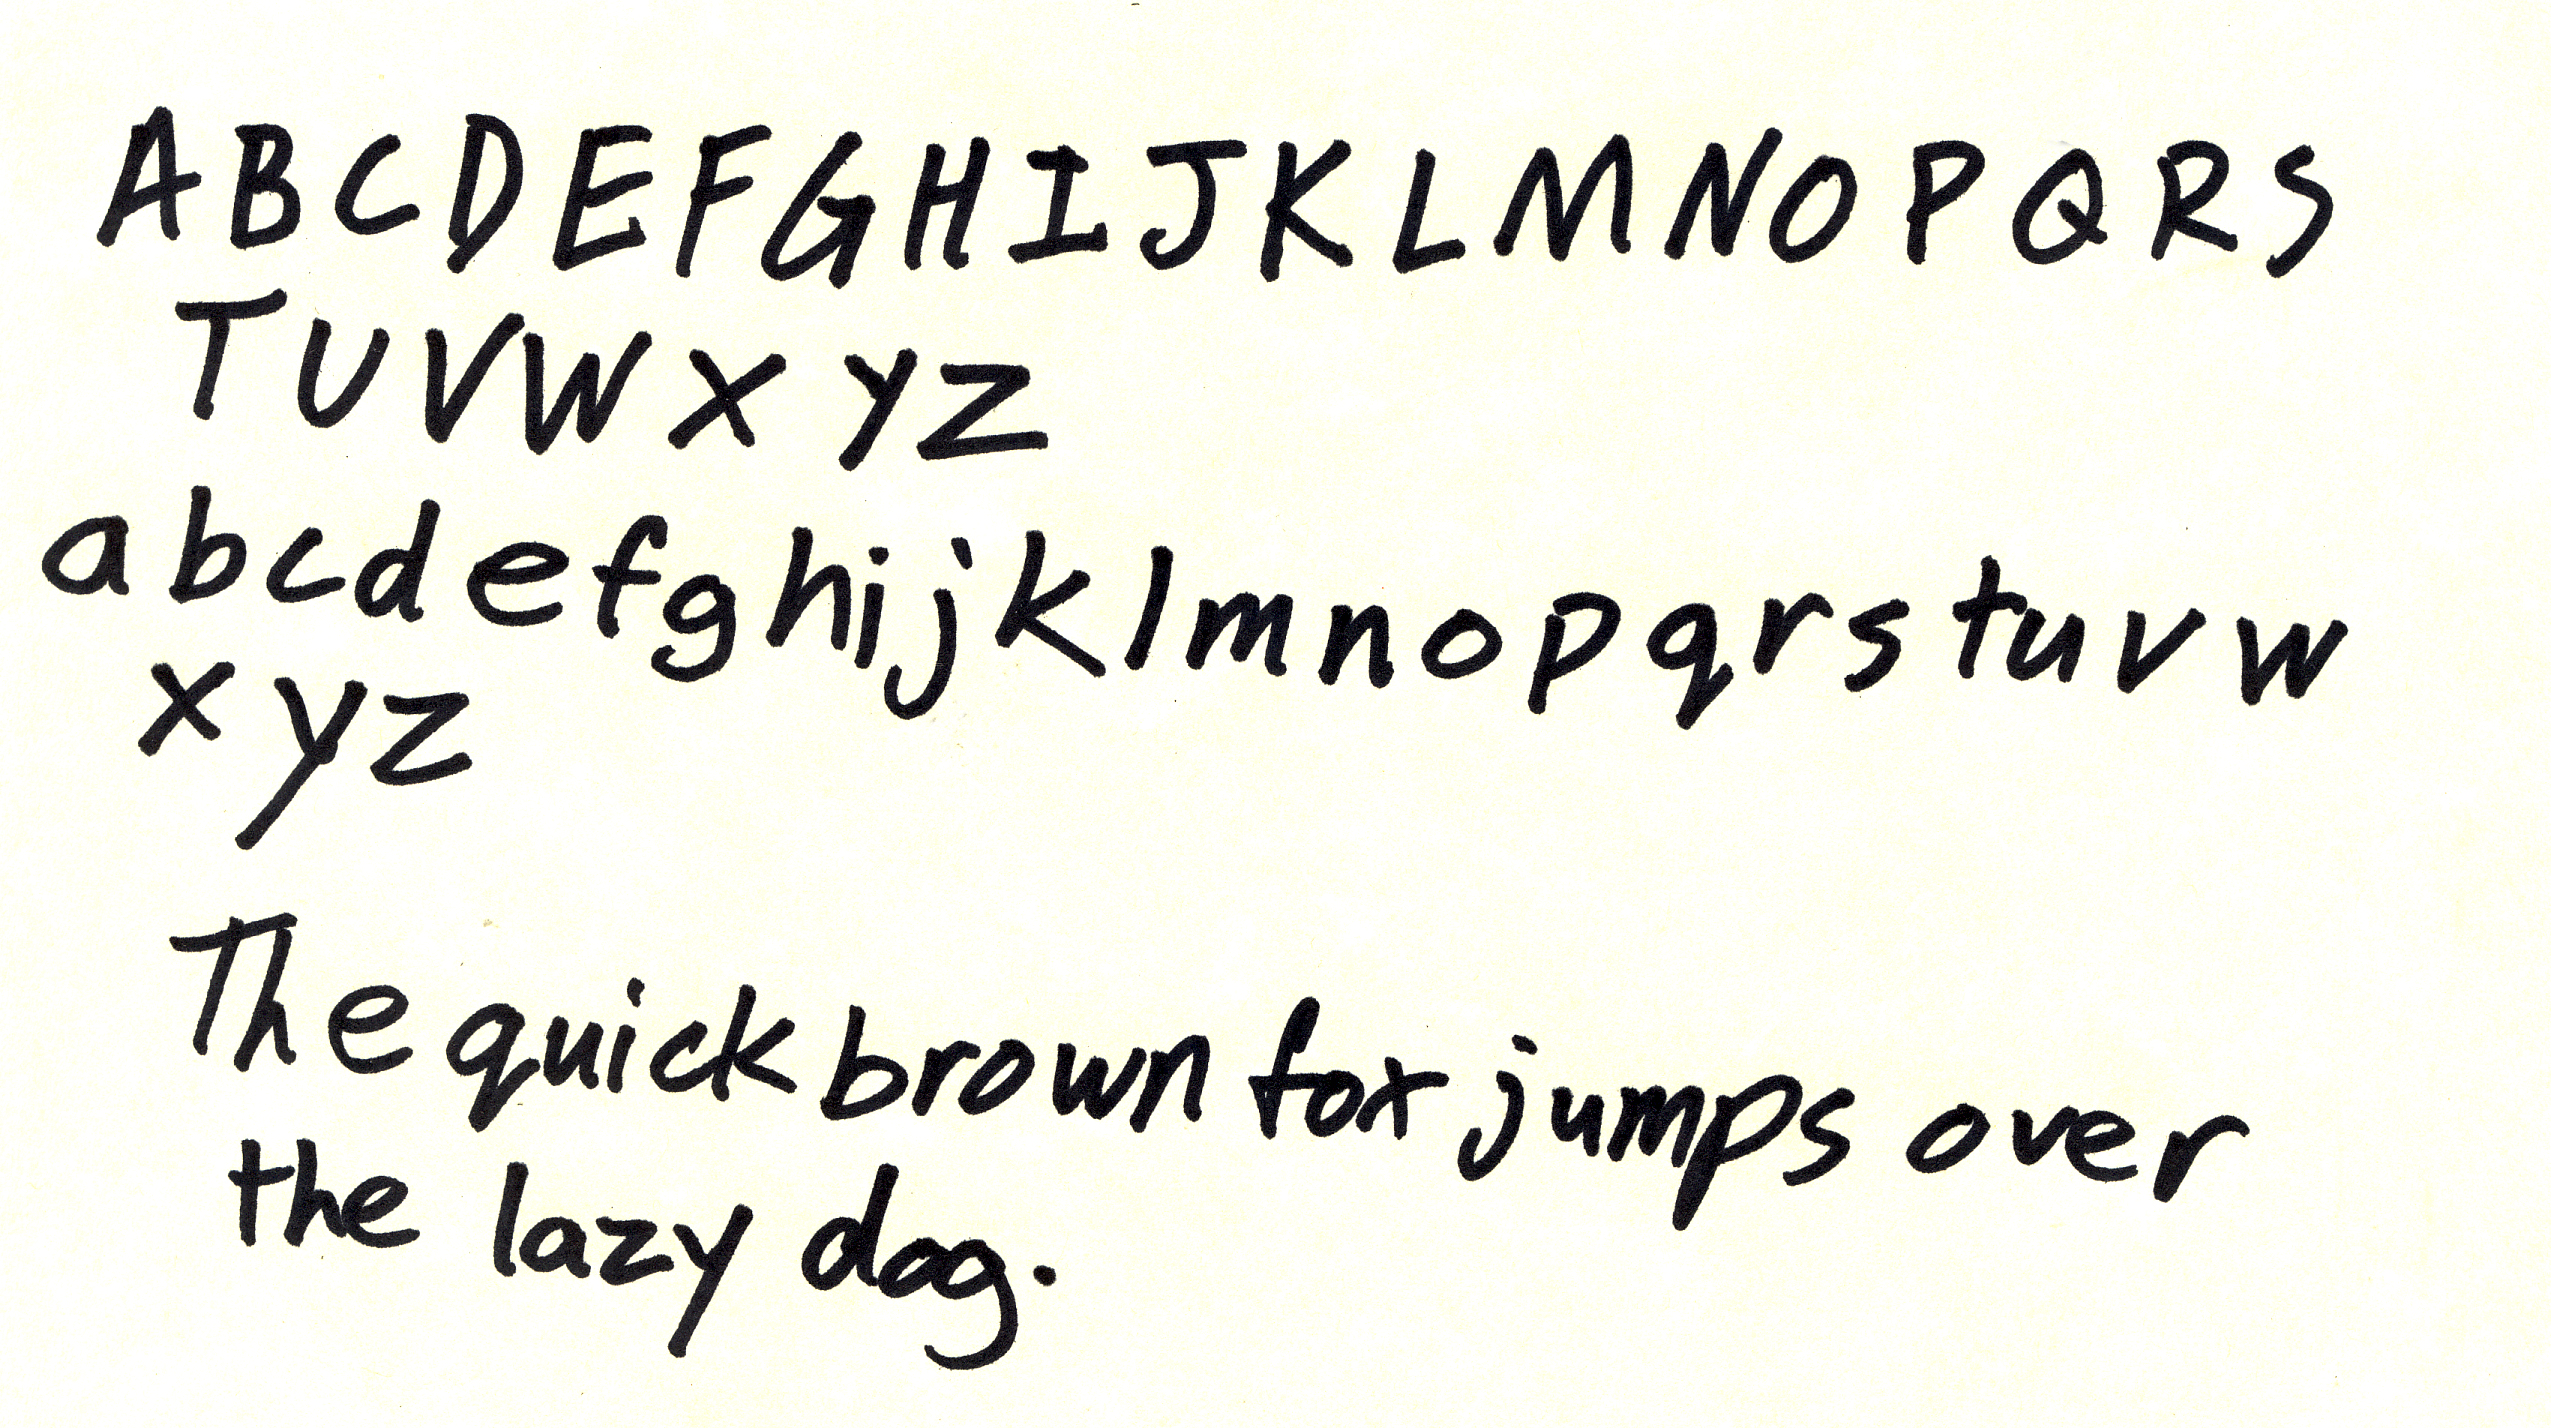 A B C D E F G H I J K L M N O P Q R S
T U V W X Y Z
a b c d e f g h i j k l m n o p q r s t u v w
x y z
The quick brown fox jumps over
the lazy dog.